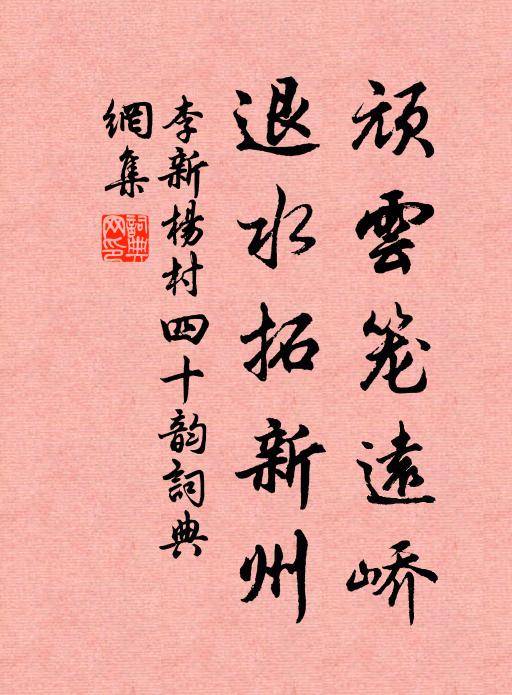 頑雲笼遠峤
退水拓新州
李新楊村四十韵詞典
網集
詞典网印